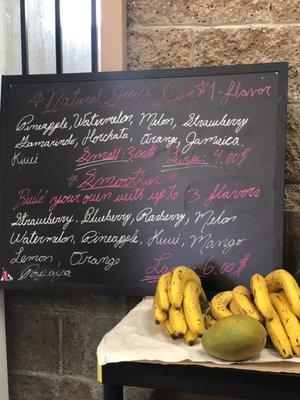 * Natural Juice for $1- flavor
Pineapple, Watermelon, Milon, Strawberry
Gamarindo, Horchata, Orang, Jamaica
Kiwi Small: 3.00$ Large: 4.00$
* Smoothies *
Build your own with up to 3 flavors
Strawberry, Blueberry, Rasberry, Melon
Watermelon, Pineapple, Kiwi, Mango
Lemon, Orange
Papaya Large 6.00$